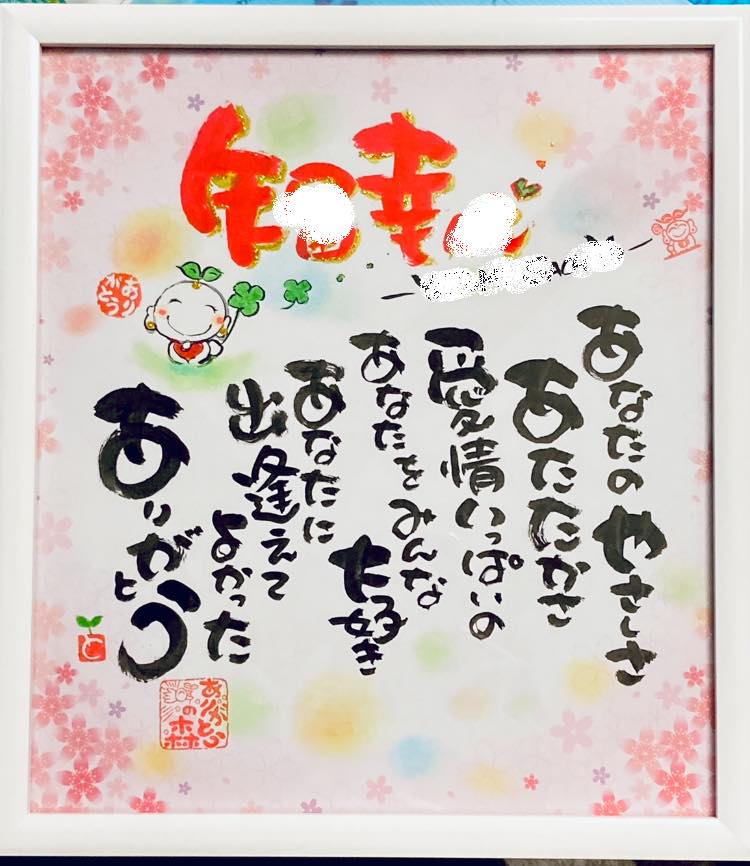 幸
ありがとう
あなたのやさしさ
あたたかさ
愛情いっぱいの
あなたをみんな
大好き
あなたに
出逢えて
よかった
ありがとう
ありがとう
の森